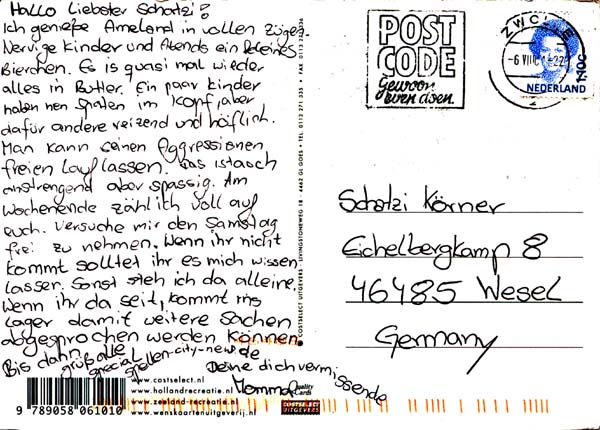 Hallo Liebster Schatzi!
Ich genieße Ameland in vollen Zügen
Nervige Kinder und Abends ein kleines
Bierchen. Es is quasi mal wieder
alles in Butter. Ein paar kinder
haben nen Spaten im Kopf, aber
dafür andere reizend und höflich.
Man kann seinen Aggressionen
freien Lauf lassen. Das ist auch
anstrengend aber spassig. Am
Wochenende zähl ich voll auf
euch. Versuche mir den Samstag
frei zu nehmen. Wenn ihr nicht
kommt solltet ihr es mich wissen
lassen. Sonst steh ich da alleine.
Wenn ihr da seit, kommt ins
Lager damit weitere Sachen
abgesprochen werden können.
Bis dann grüß alle
special
Deine dich vermissende
Momma
POST
CODE
Gewoon
even doen.
ZWOLLE
NEDERLAND
Schatzi Körner
Eichelbergkamp 8
46485 Wesel
Germany
COSTSELECT UITGEVERS - LIVINGSTONEWEG 18 - 4462 GL GOES - TEL 0113 271 325 - FAX 0113
www.costselect.nl
www.hollandrecreatie.nl
www.zeeland-recreatie.nl
www.wenskaartenuitgeverij.nl
9 789058 061010
Quality Cards
COSTSELECT
UITGEVERS